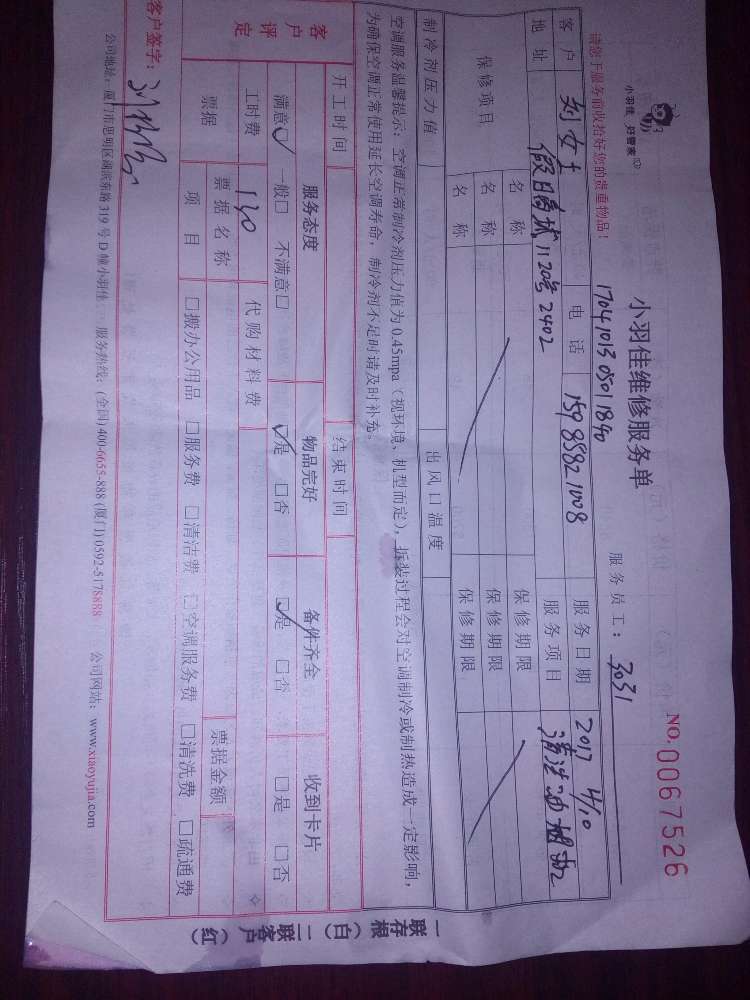 小羽佳 好管家
小羽佳维修服务单
NO.0067526
170410130501890
服务员工：3031
请您于服务前收拾好您的贵重物品！
客户 刘女士 电话 15985821008 服务日期 2017 4/10
地址 假日商城1120号2402 服务项目 清洁油烟机
保修项目 名称 保修期限
名称 保修期限
名称 保修期限
制冷剂压力值 出风口温度
空调服务温馨提示：空调正常制冷剂压力值为0.45mpa（视环境、机型而定），拆装过程会对空调制冷或制热造成一定影响，
为确保空调正常使用延长空调寿命，制冷剂不足时请及时补充。
开工时间 结束时间
客户评定 服务态度 物品完好 备件齐全 收到卡片
满意☑ 一般□ 不满意□ ☑是 □否 ☑是 □否 □是 □否
工时费 130 代购材料费
票据 票据名称 票据金额
项目 □搬办公用品 □服务费 □清洁费 □空调服务费 □清洗费 □疏通费
客户签字：
公司地址：厦门市思明区湖滨东路319号D幢小羽佳 服务热线：(全国)400-6655-888 (厦门)0592-5178888 公司网站：www.xiaoyujia.com
一联存根（白）二联客户（红）